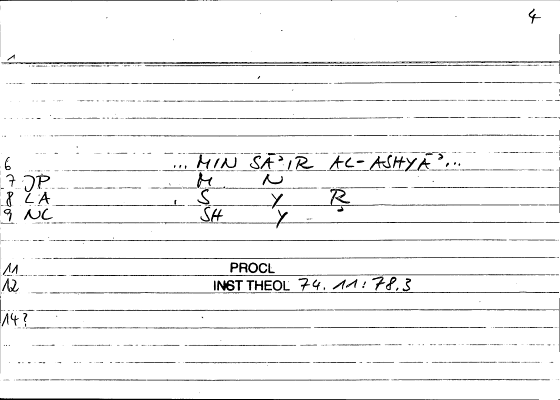 4
1
6 ... MIN SĀʾIR AL-ASHYĀʾ...
7 JP M N
8 LA . S Y R
9 NC SH Y ʾ
11 PROCL
12 INST THEOL 74.11:78.3
14?